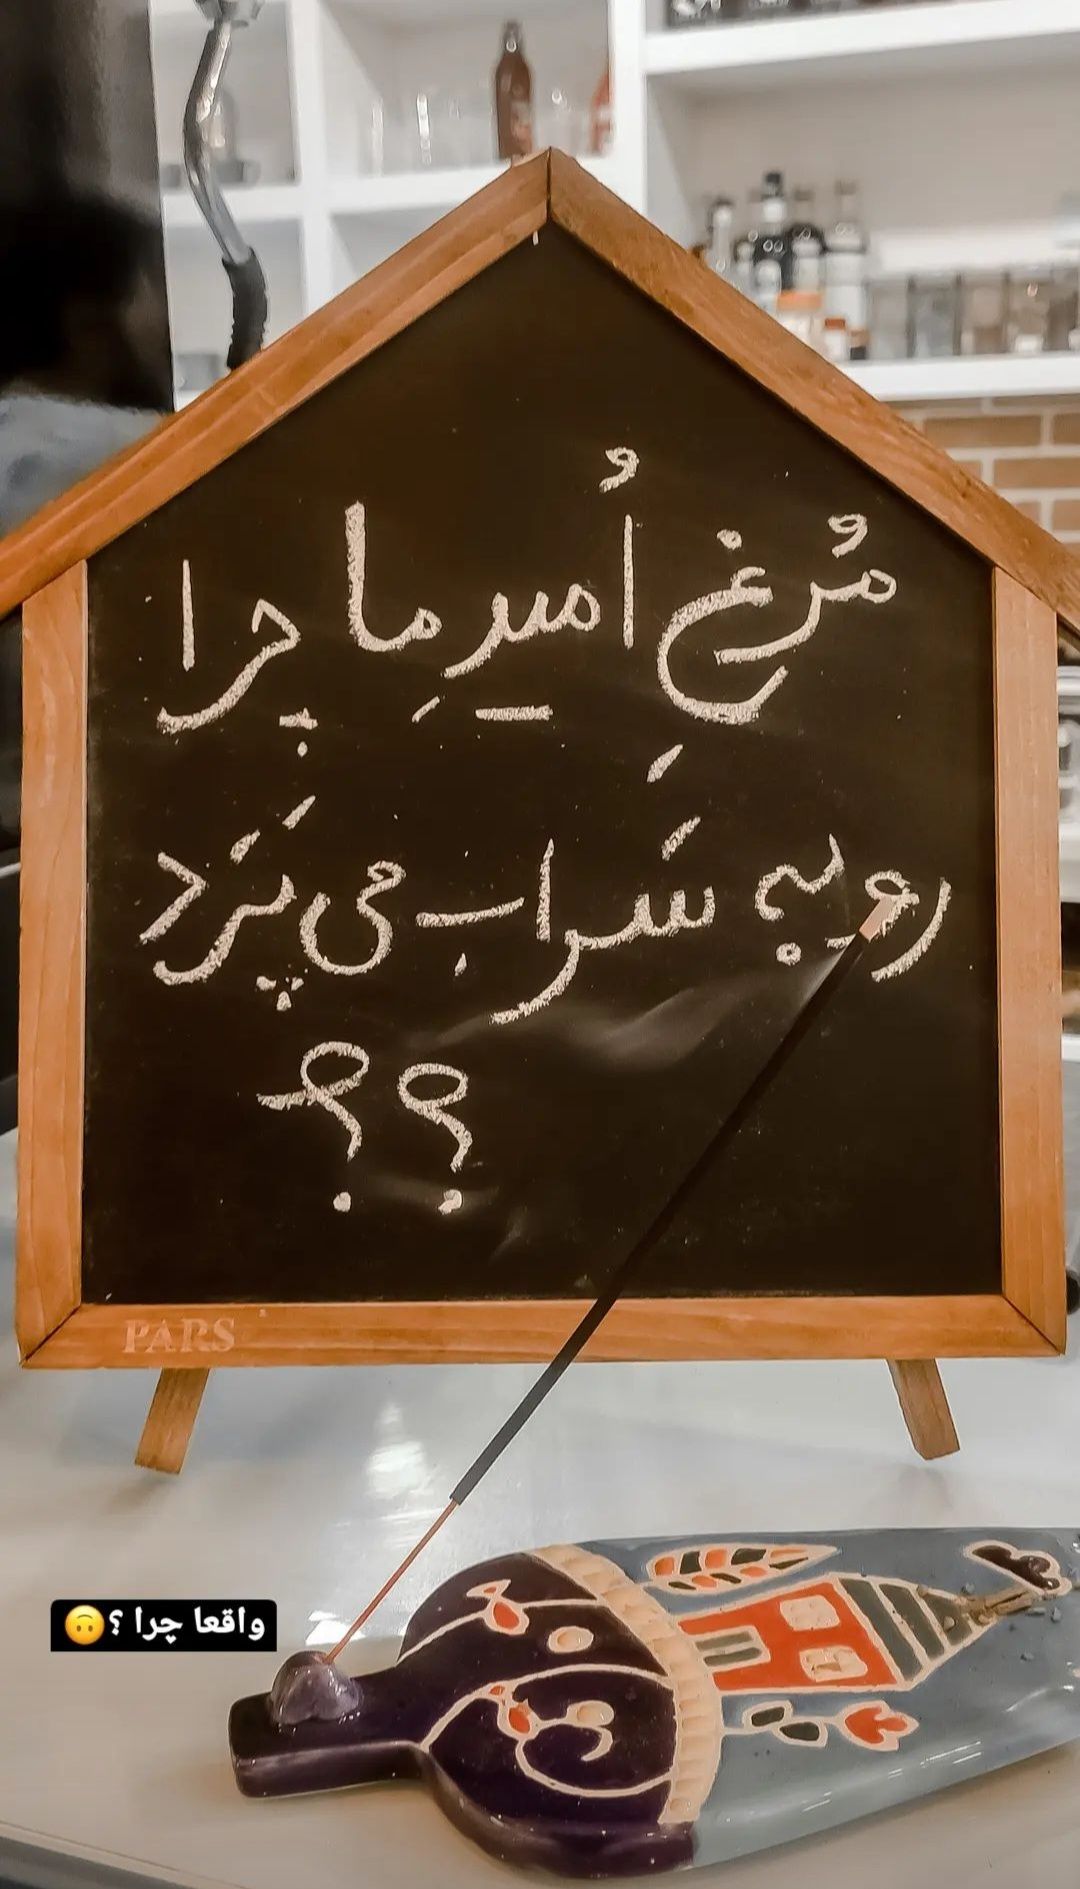 مُرغِ اُمیدِ ما چرا
رو به سَراب می پَرَد
؟؟
PARS
واقعا چرا ؟🙃